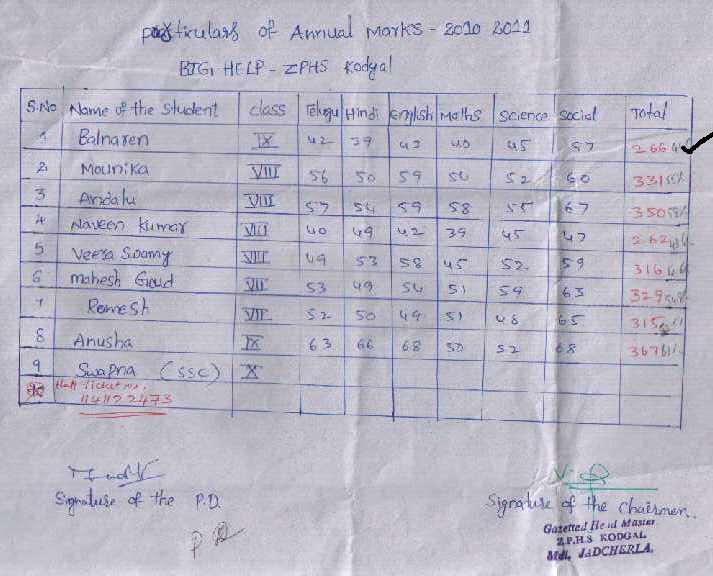 particulars of Annual Marks - 2010 2011
BIG HELP - ZPHS Kodgal
S.No Name of the Student class Telugu Hindi English Maths Science Social Total
1 Balnaren IX 42 39 43 40 45 57 266
2 Mounika VIII 56 50 59 54 52 60 331 55%
3 Andalu VIII 57 54 59 58 55 67 350 58%
4 Naveen Kumar VIII 40 49 42 39 45 47 262
5 Veera Swamy VIII 49 53 58 45 52 59 316
6 mahesh Goud VII 53 49 54 51 59 63 329
7 Ramesh VII 52 50 49 51 48 65 315
8 Anusha IX 63 66 68 50 52 68 367 61%
9 Swapna (SSC) X
Hall Ticket no.
1141122473
Signature of the P.D.
P D
Signature of the Chairmen.
Gazetted Head Master
Z.P.H.S KODGAL
Mdl. JADCHERLA.